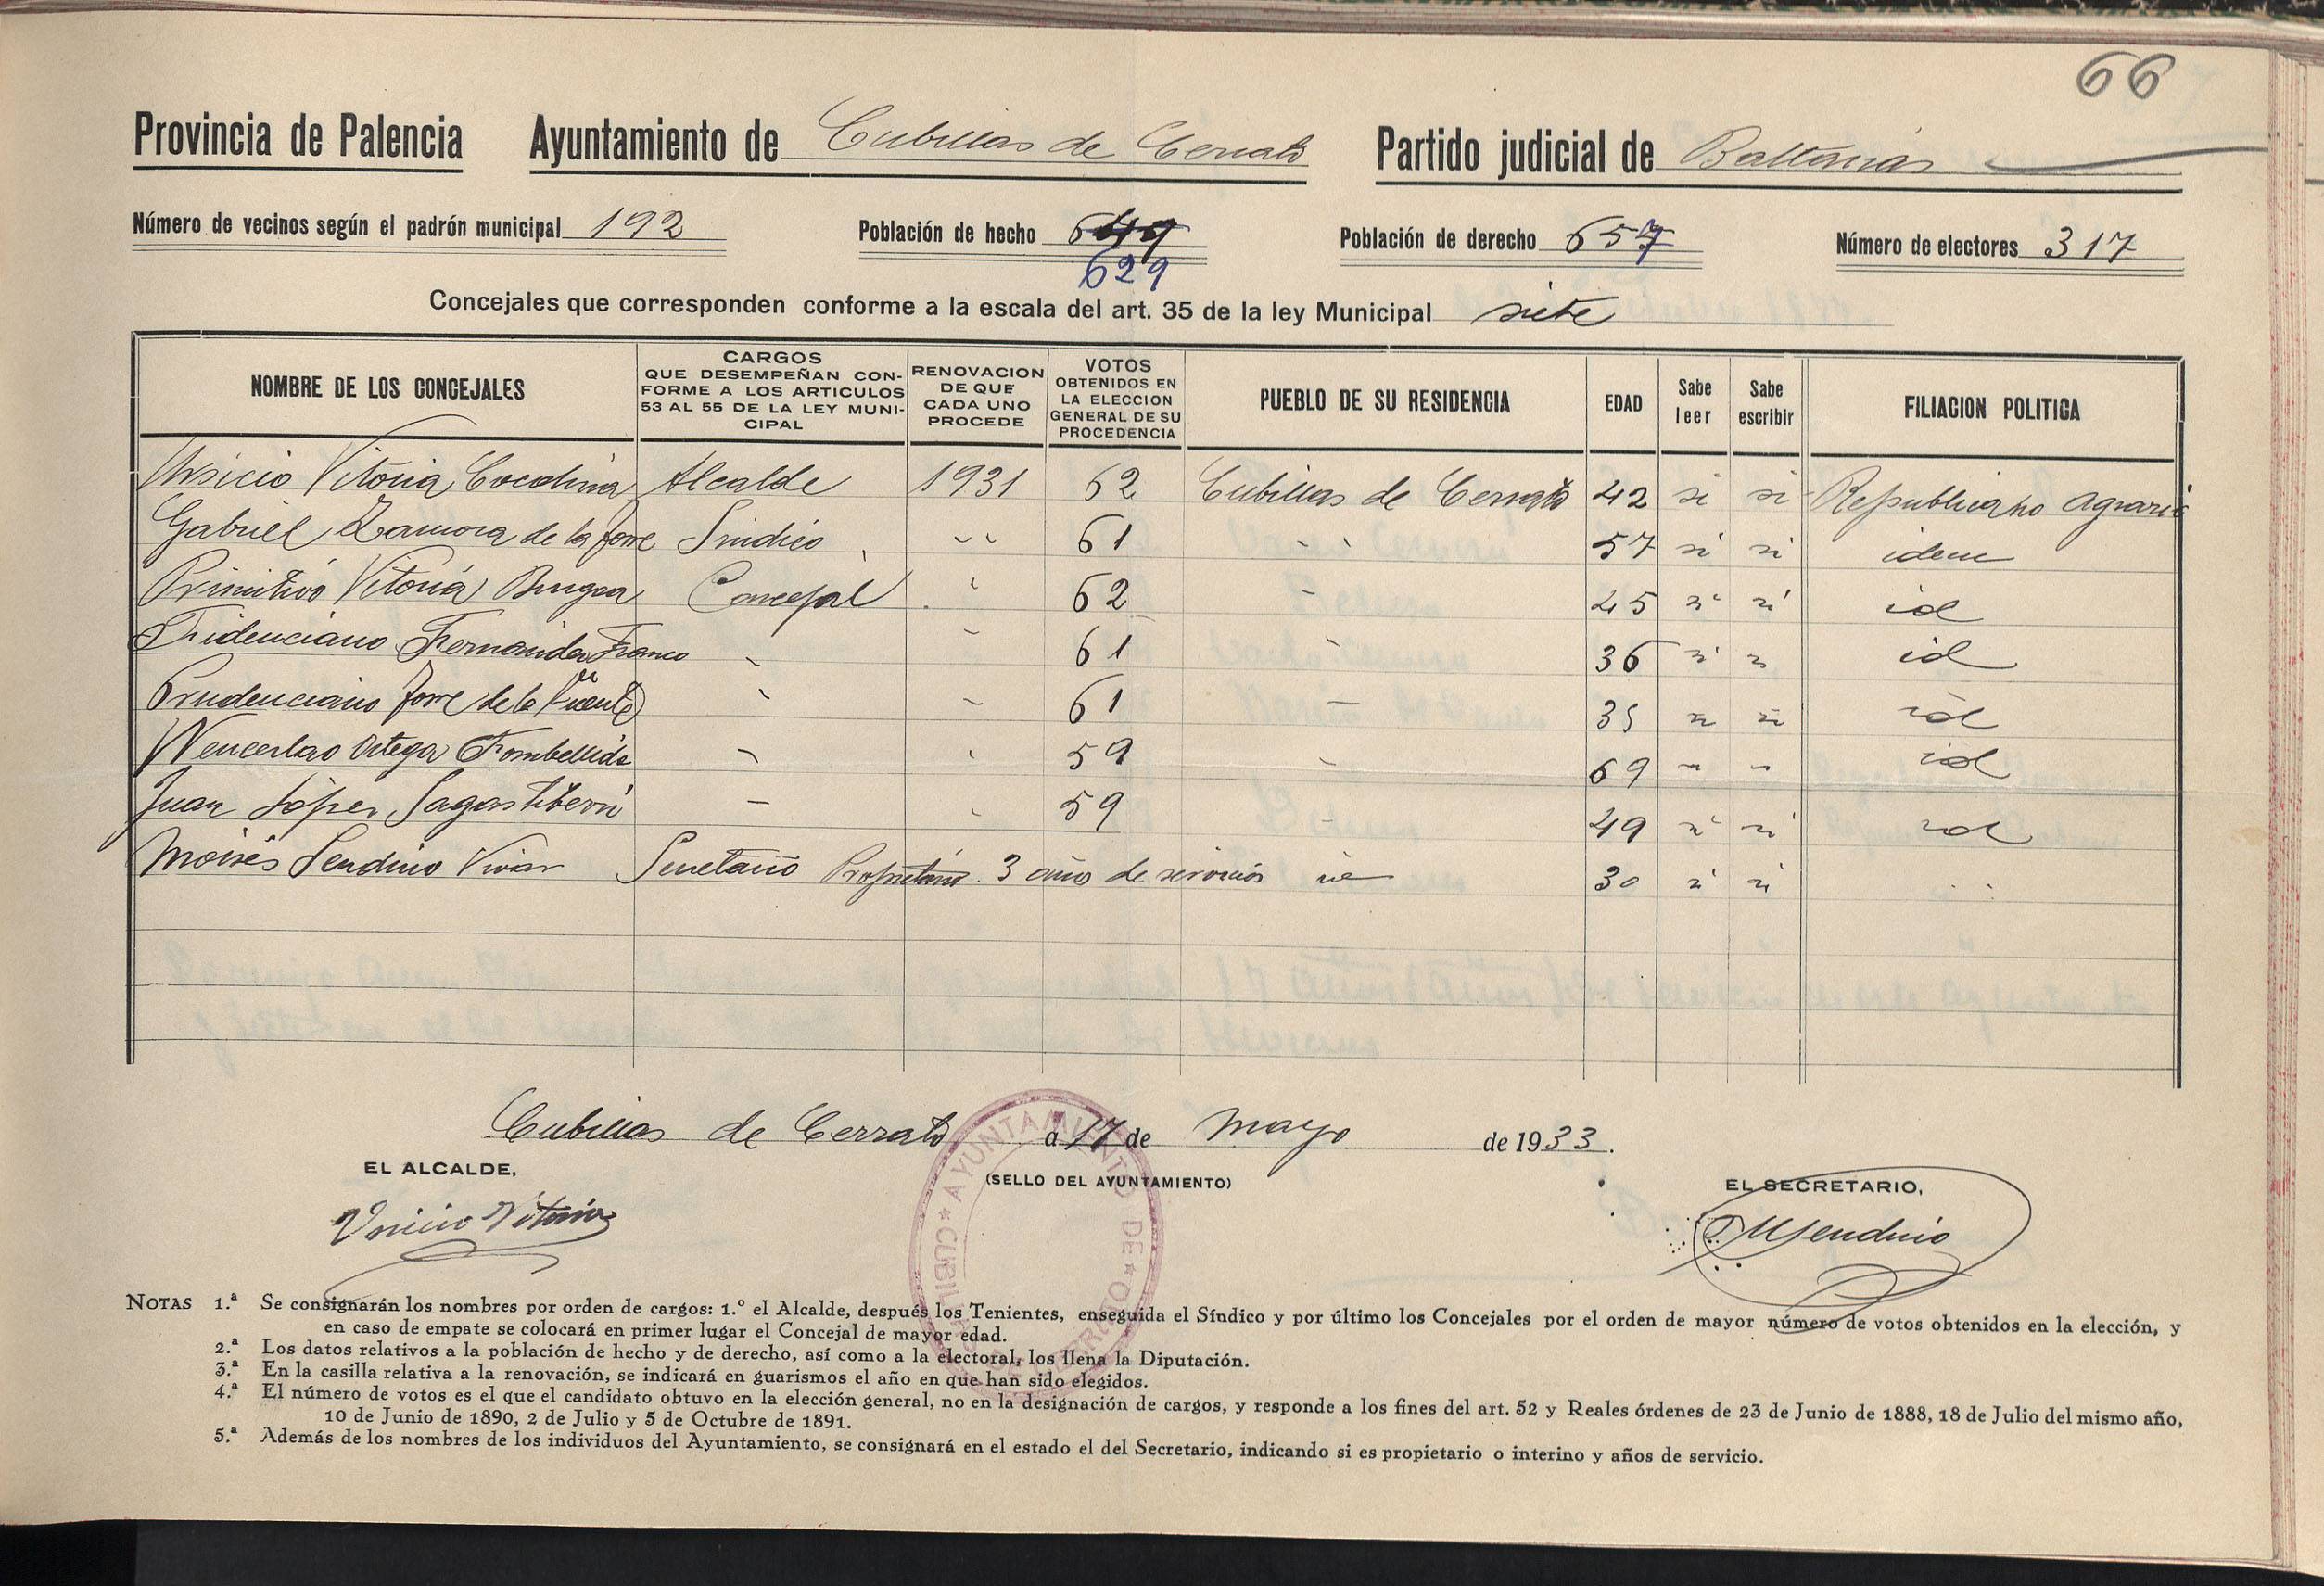 66
Provincia de Palencia Ayuntamiento de Cubillas de Cerrato Partido judicial de Baltanás
Número de vecinos según el padrón municipal 192 Población de hecho 649 Población de derecho 657 Número de electores 317
629
Concejales que corresponden conforme a la escala del art. 35 de la ley Municipal siete
NOMBRE DE LOS CONCEJALES CARGOS QUE DESEMPEÑAN CONFORME A LOS ARTICULOS 53 AL 55 DE LA LEY MUNICIPAL RENOVACION DE QUE CADA UNO PROCEDE VOTOS OBTENIDOS EN LA ELECCION GENERAL DE SU PROCEDENCIA PUEBLO DE SU RESIDENCIA EDAD Sabe leer Sabe escribir FILIACION POLITICA
Ursicio Vitoria Alcalde 1931 62 Cubillas de Cerrato 42 si si Republicano agrario
Gabriel Zamora de la Torre Sindico " 61 " 57 si si idem
Primitivo Vitoria Concejal " 62 " 45 si si id
Fidenciano Fernández Franco " " 61 " 36 si si id
Prudenciano Torre de la Fuente " " 61 " 35 si si id
Wenceslao Ortega Fombellida " " 59 " 69 " " id
Juan López Sagastiberri " " 59 " 49 si si id
Moisés Sendino Vivar Secretario Propietario. 3 años de servicios 30 si si
Cubillas de Cerrato a 17 de Mayo de 1933.
EL ALCALDE, (SELLO DEL AYUNTAMIENTO) EL SECRETARIO,
Ursicio Vitoria MSendino
AYUNTAMIENTO DE * CUBILLAS DE CERRATO *
NOTAS 1.ª Se consignarán los nombres por orden de cargos: 1.º el Alcalde, después los Tenientes, enseguida el Síndico y por último los Concejales por el orden de mayor número de votos obtenidos en la elección, y
en caso de empate se colocará en primer lugar el Concejal de mayor edad.
2.ª Los datos relativos a la población de hecho y de derecho, así como a la electoral, los llena la Diputación.
3.ª En la casilla relativa a la renovación, se indicará en guarismos el año en que han sido elegidos.
4.ª El número de votos es el que el candidato obtuvo en la elección general, no en la designación de cargos, y responde a los fines del art. 52 y Reales órdenes de 23 de Junio de 1888, 18 de Julio del mismo año,
10 de Junio de 1890, 2 de Julio y 5 de Octubre de 1891.
5.ª Además de los nombres de los individuos del Ayuntamiento, se consignará en el estado el del Secretario, indicando si es propietario o interino y años de servicio.